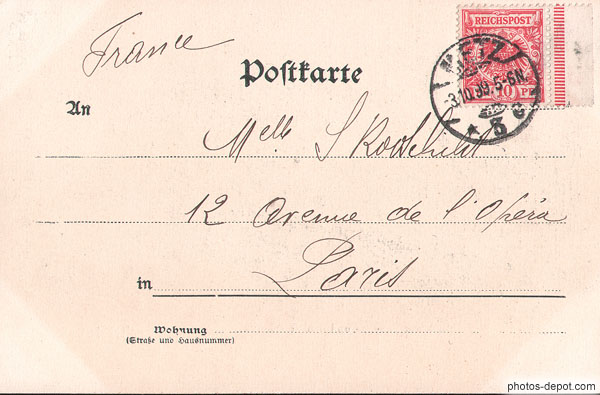 France
Postkarte
REICHSPOST
10 PF
METZ
3.10.99.5-6N.
* 3 c
An
Melle S Rothschild
12 Avenue de l'Opéra
in Paris
Wohnung
(Straße und Hausnummer)
photos-depot.com